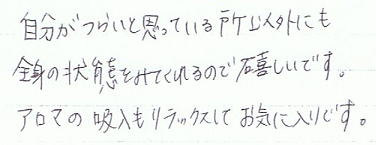 自分がつらいと思っている所以外にも
全身の状態をみてくれるので嬉しいです。
アロマの吸入もリラックスしてお気に入りです。